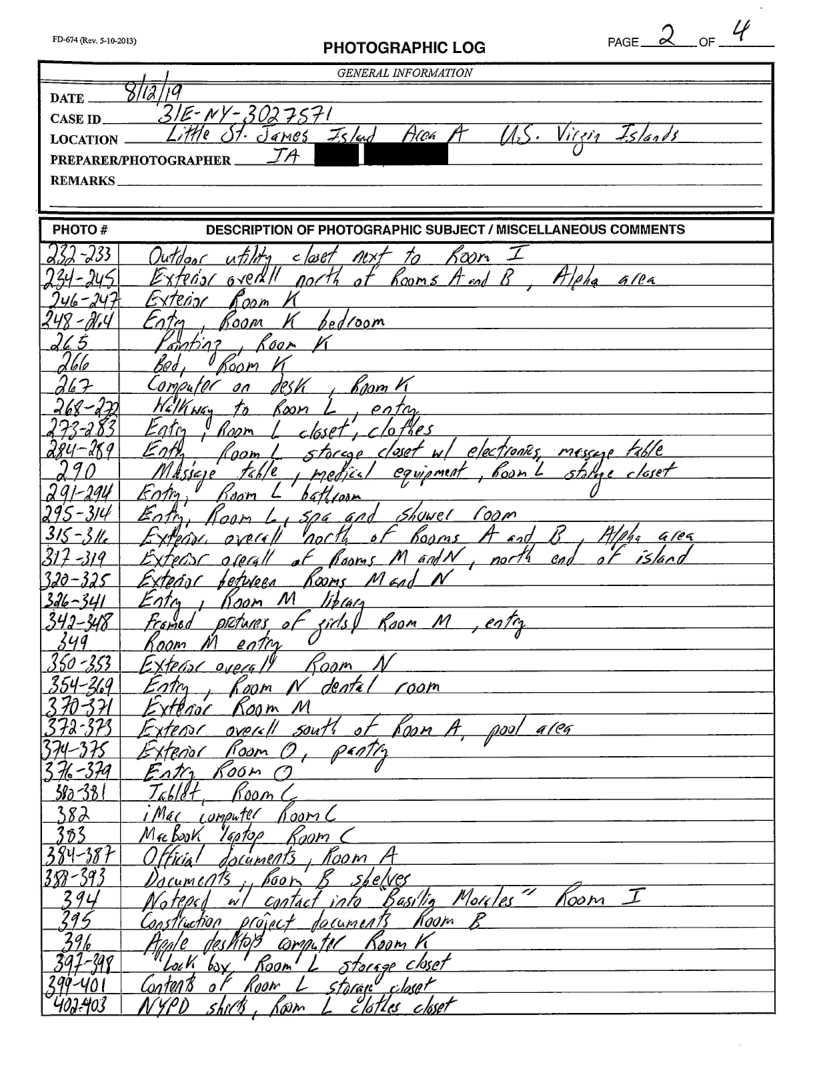 FD-674 (Rev. 5-10-2013)
PHOTOGRAPHIC LOG
PAGE 2 OF 4
GENERAL INFORMATION
DATE 8/12/19
CASE ID 31E-NY-3027571
LOCATION Little St. James Island Area A U.S. Virgin Islands
PREPARER/PHOTOGRAPHER IA
REMARKS
PHOTO # DESCRIPTION OF PHOTOGRAPHIC SUBJECT / MISCELLANEOUS COMMENTS
232-233 Outdoor utility closet next to Room I
234-245 Exterior overall north of Rooms A and B, Alpha area
246-247 Exterior Room K
248-264 Entry, Room K bedroom
265 Painting, Room K
266 Bed, Room K
267 Computer on desk, Room K
268-272 Walkway to Room L, entry
273-283 Entry, Room L closet, clothes
284-289 Entry, Room L storage closet w/ electronics, message table
290 Massage table, medical equipment, Room L storage closet
291-294 Entry, Room L bathroom
295-314 Entry, Room L, spa and shower room
315-316 Exterior, overall north of Rooms A and B, Alpha area
317-319 Exterior overall of Rooms M and N, north end of island
320-325 Exterior between Rooms M and N
326-341 Entry, Room M library
342-348 Framed pictures of girls, Room M, entry
349 Room M entry
350-353 Exterior overall Room N
354-369 Entry, Room N dental room
370-371 Exterior Room M
372-373 Exterior overall south of Room A, pool area
374-375 Exterior Room O, pantry
376-379 Entry Room O
380-381 Tablet, Room C
382 iMac computer Room C
383 MacBook laptop Room C
384-387 Official documents, Room A
388-393 Documents, Room B shelves
394 Notepad w/ contact info "Basilia Morales" Room I
395 Construction project documents Room B
396 Apple desktop computer Room K
397-398 Lock box, Room L storage closet
399-401 Contents of Room L storage closet
402-403 NYPD shirts, Room L clothes closet